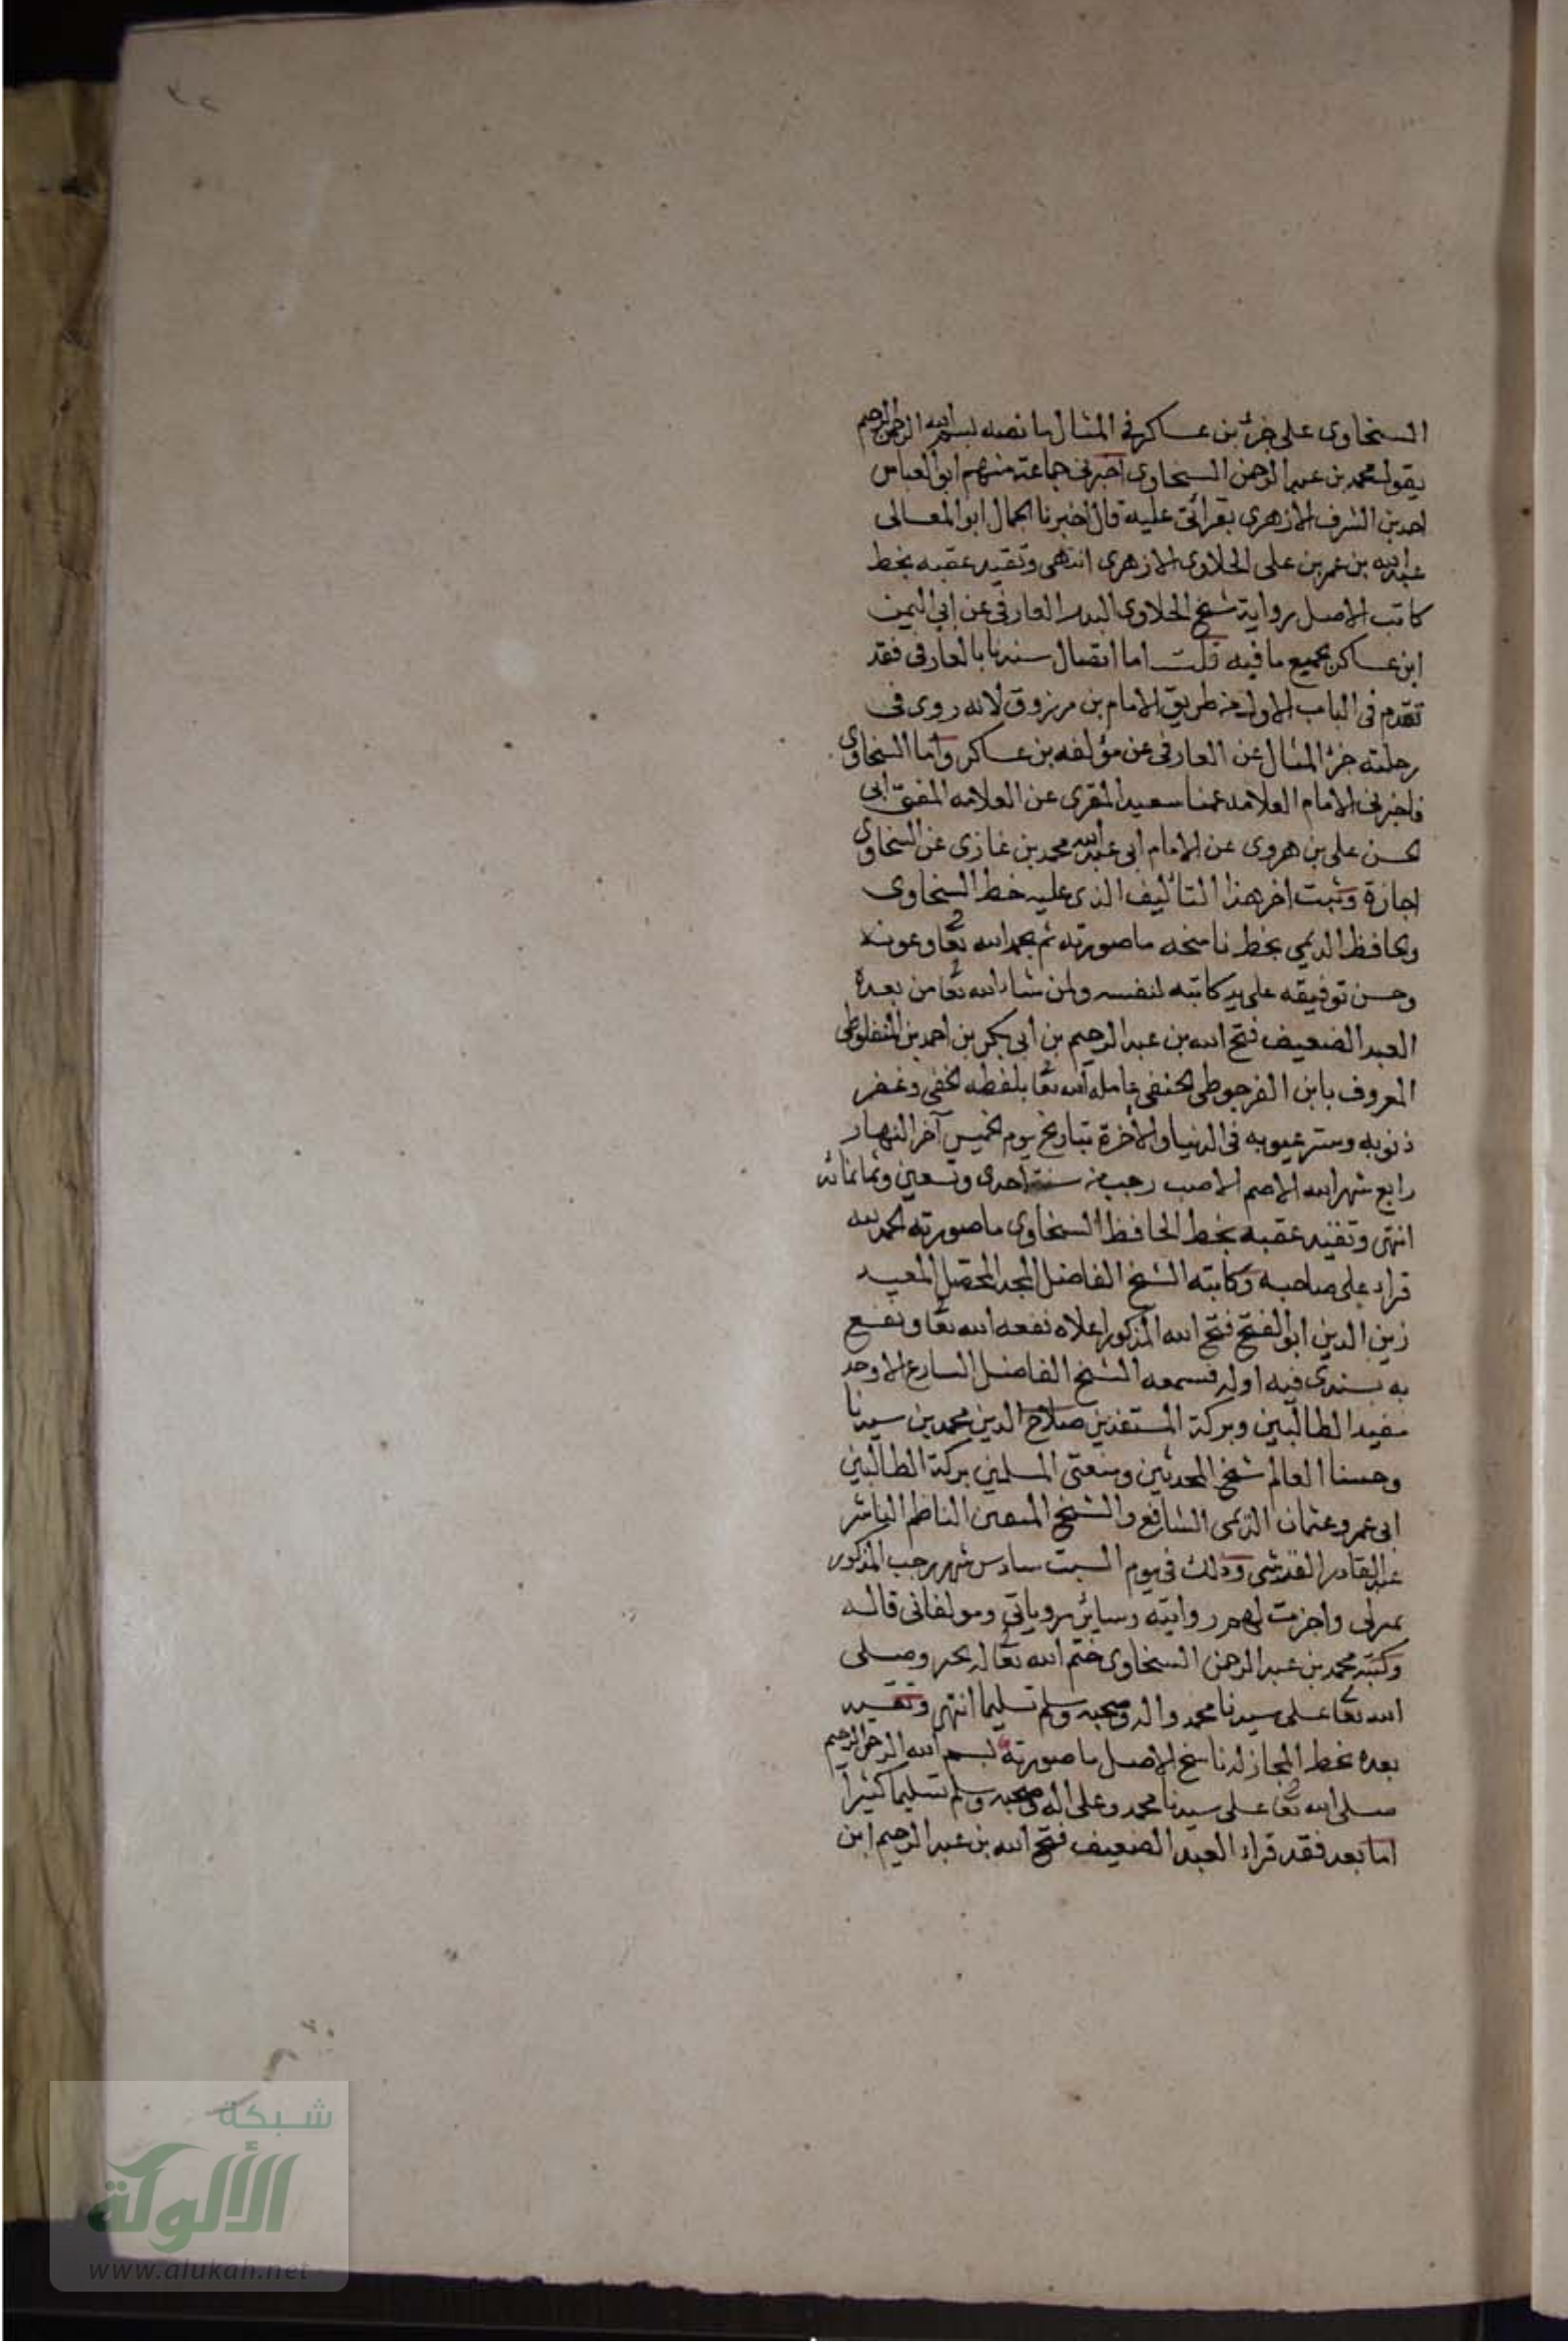 ٣٢
السخاوى على جزء بن عساكر فى المثال ما نصه بسم الله الرحمن الرحيم
يقول محمد بن عبد الرحمن السخاوى اخبرنى جماعة منهم ابو العباس
احمد بن الشرف الازهرى بقرائتى عليه قال اخبرنا الجمال ابو المعالى
عبد الله بن عمر بن على الحلاوى الازهرى انتهى وتقيد عقبه بخط
كاتب الاصل رواية شيخ الحلاوى البدر الفارقى عن ابى اليمن
ابن عساكر بجميع ما فيه قلت اما اتصال سندنا بالفارقى فقد
تقدم فى الباب الاول من طريق الامام بن مرزوق لانه روى فى
رحلته جزء المثال عن الفارقى عن مؤلفه بن عساكر واما السخاوى
فاخبرنى الامام العلامه عمنا سعيد المقرى عن العلامه المفتى ابى
الحسن على بن هروى عن الامام ابى عبد الله محمد بن غازى عن السخاوى
اجازة وثبت اخر هذا التأليف الذى عليه خط السخاوى
والحافظ الديمي بخط ناسخه ما صورته تم بحمد الله تعا وعونه
وحسن توفيقه على يد كاتبه لنفسه ولمن شاء الله تعا من بعده
العبد الضعيف فتح الله بن عبد الرحيم بن ابى بكر بن احمد بن المنفلوطى
المعروف بابن الفرجوطى الحنفى عامله الله تعا بلفطه الخفى وغفر
ذنوبه وستر عيوبه فى الدنيا والأخرة بتاريخ يوم الخميس آخر النهار
رابع شهر الله الاصم الاصب رجب من سنة احدى وتسعين وثمانمائه
انتهى وتقيد عقبه بخط الحافظ السخاوى ما صورته الحمد لله
قراه على صاحبه وكاتبه الشيخ الفاضل المجد المحصل المعيد
زين الدين ابو الفتح فتح الله المذكور اعلاه نفعه الله تعا ونفع
به بسندى فيه اوله فسمعه الشيخ الفاضل البارع الاوحد
مفيد الطالبين وبركة المستفدين صلاح الدين محمد بن سيدنا
وحسنا العالم شيخ المحدثين ومفتى المسلمين بركة الطالبين
ابى عمرو عثمان الديمى الشافع والشيخ المتعين الناظم الناثر
عبد القادر القدسى وذلك فى يوم السبت سادس شهر رجب المذكور
بمنزلى واجزت لهم روايته وساير مروياتى ومولفاتى قاله
وكتبه محمد بن عبد الرحمن السخاوى ختم الله تعا له بخير وصلى
الله تعا على سيدنا محمد واله وصحبه وسلم تسليما انتهى وتقيد
بعده بخط المجاز له ناسخ الاصل ما صورته بسم الله الرحمن الرحيم
صلى الله تعا على سيدنا محمد وعلى اله وصحبه وسلم تسليما كثيرا
اما بعد فقد قراء العبد الضعيف فتح الله بن عبد الرحيم ابن
شبكة
الألوكة
www.alukah.net